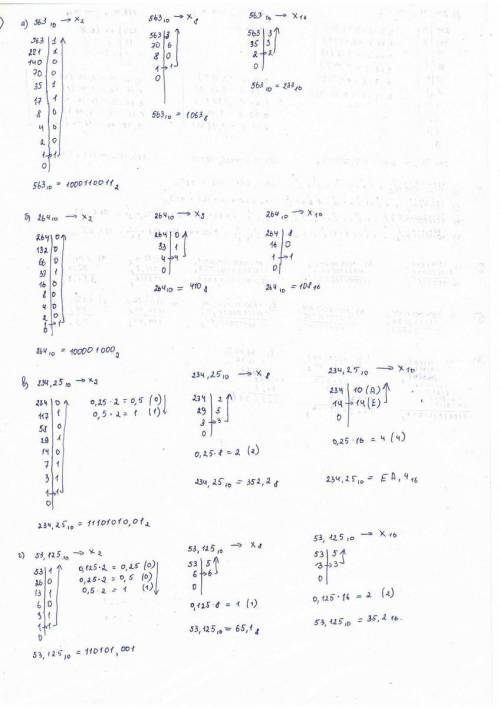 а) 563₁₀ → x₂
563 | 1
281 | 1
140 | 0
70 | 0
35 | 1
17 | 1
8 | 0
4 | 0
2 | 0
1 → 1
0
563₁₀ = 1000110011₂
563₁₀ → x₈
563 | 3
70 | 6
8 | 0
1 → 1
0
563₁₀ = 1063₈
563₁₀ → x₁₆
563 | 3
35 | 3
2 → 2
0
563₁₀ = 233₁₆
б) 264₁₀ → x₂
264 | 0
132 | 0
66 | 0
33 | 1
16 | 0
8 | 0
4 | 0
2 | 0
1 → 1
0
264₁₀ = 100001000₂
264₁₀ → x₈
264 | 0
33 | 1
4 → 4
0
264₁₀ = 410₈
264₁₀ → x₁₆
264 | 8
16 | 0
1 → 1
0
264₁₀ = 108₁₆
в) 234,25₁₀ → x₂
234 | 0
117 | 1
58 | 0
29 | 1
14 | 0
7 | 1
3 | 1
1 → 1
0
0,25·2 = 0,5 (0)
0,5·2 = 1 (1)
234,25₁₀ = 11101010,01₂
234,25₁₀ → x₈
234 | 2
29 | 5
3 → 3
0
0,25·8 = 2 (2)
234,25₁₀ = 352,2₈
234,25₁₀ → x₁₆
234 | 10 (A)
14 → 14 (E)
0
0,25·16 = 4 (4)
234,25₁₀ = EA,4₁₆
г) 53,125₁₀ → x₂
53 | 1
26 | 0
13 | 1
6 | 0
3 | 1
1 → 1
0
0,125·2 = 0,25 (0)
0,25·2 = 0,5 (0)
0,5·2 = 1 (1)
53,125₁₀ = 110101,001
53,125₁₀ → x₈
53 | 5
6 → 6
0
0,125·8 = 1 (1)
53,125₁₀ = 65,1₈
53,125₁₀ → x₁₆
53 | 5
3 → 3
0
0,125·16 = 2 (2)
53,125₁₀ = 35,2₁₆